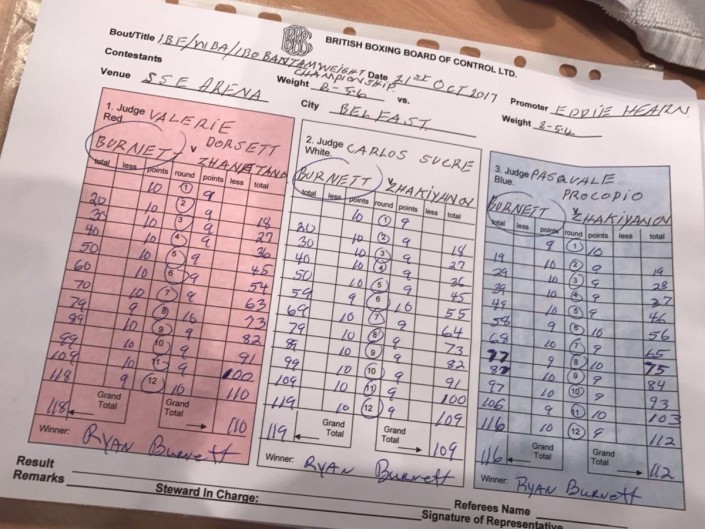 BRITISH BOXING BOARD OF CONTROL LTD.
Bout/Title IBF/WBA/IBO BANTAMWEIGHT CHAMPIONSHIP Date 21st OCT 2017
Contestants vs.
Weight 8-5.6
Promoter EDDIE HEARN
Venue SSE ARENA
City BELFAST
Weight 8-5.4
1. Judge VALERIE
Red. DORSETT
BURNETT v
total less points round points less total
10 1 9
20 10 2 9 18
30 10 3 9 27
40 10 4 9 36
50 10 5 9 45
60 10 6 9 54
70 10 7 9 63
79 9 8 10 73
89 10 9 9 82
99 10 10 9 91
109 10 11 9 100
118 9 12 10 110
118 Grand Total Grand Total 110
Winner: RYAN Burnett
2. Judge CARLOS SUCRE
White.
BURNETT v ZHAKIYANOV
total less points round points less total
10 1 9
20 10 2 9 18
30 10 3 9 27
40 10 4 9 36
50 10 5 9 45
59 9 6 10 55
69 10 7 9 64
79 10 8 9 73
89 10 9 9 82
99 10 10 9 91
109 10 11 9 100
119 10 12 9 109
119 Grand Total Grand Total 109
Winner: RYAN Burnett
3. Judge PASQUALE
Blue. PROCOPIO
BURNETT v ZHAKIYANOV
total less points round points less total
9 1 10
19 10 2 9 19
29 10 3 9 28
39 10 4 9 37
49 10 5 9 46
58 9 6 10 56
68 10 7 9 65
77 9 8 10 75
87 10 9 9 84
97 10 10 9 93
106 9 11 10 103
116 10 12 9 112
116 Grand Total Grand Total 112
Winner: RYAN Burnett
Result
Remarks
Steward In Charge:
Referees Name
Signature of Representative